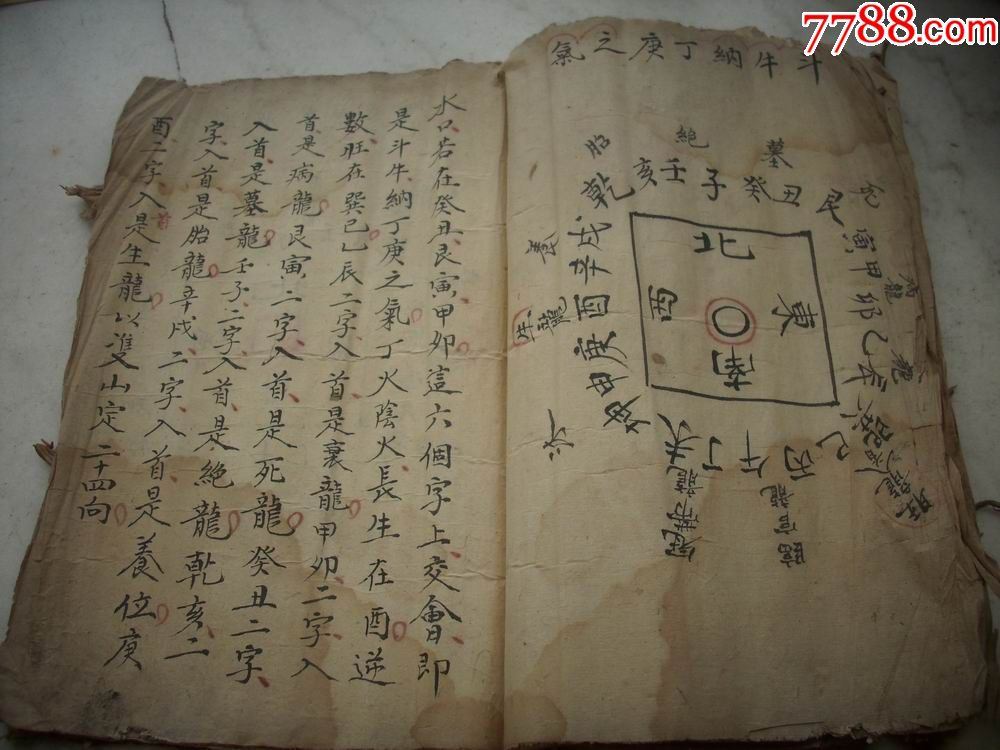 7788.com
斗牛納丁庚之氣
墓
絕
胎
丑癸子壬亥
乾
戌辛酉庚申
養
生龍
寅甲卯乙辰
病龍
北
東
南
西
巳丙午丁
冠帶龍
臨官龍
水口若在癸丑艮寅甲卯這六個字上交會即
是斗牛納丁庚之氣丁火陰火長生在酉逆
數旺在巽巳乙辰二字入首是衰龍甲卯二字入
首是病龍艮寅二字入首是死龍癸丑二字
入首是墓龍壬子二字入首是絕龍乾亥二
字入首是胎龍辛戌二字入首是養位庚
酉二字入首是生龍以雙山定二十四向